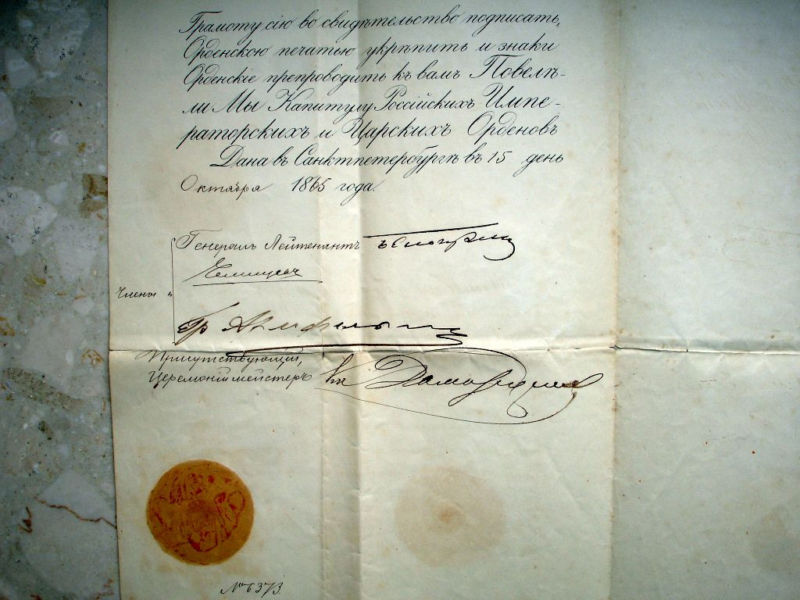 Грамоту сію во свидѣтельство подписать,
Орденскою печатью укрѣпить и знаки
Орденскіе препроводить къ вамъ Повелѣ-
ли Мы Капитулу Россійскихъ Импе-
раторскихъ и Царскихъ Орденовъ
Дана въ Санктпетербургѣ въ 15 день
Октября 1865 года
Генералъ Лейтенантъ
Члены
Гр
Присутствующій,
Церемоніймейстеръ
№ 6373.